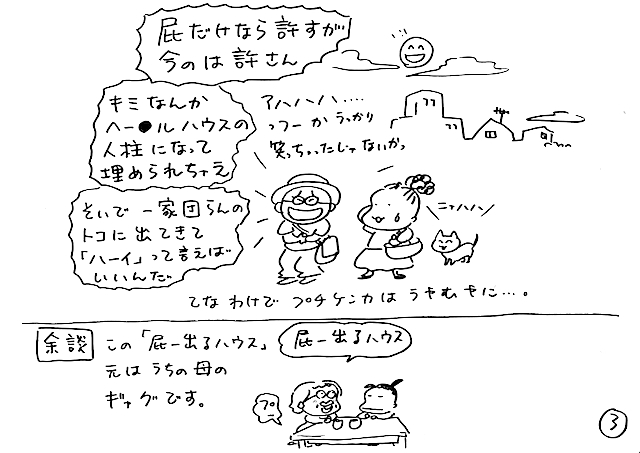 屁だけなら許すが
今のは許さん
キミなんか
ヘー●ルハウスの
人柱になって
埋められちゃえ
そいで一家団らんの
トコに出てきて
「ハーイ」って言えば
いいんだ
アハハハ‥‥
っつーかうっかり
笑っちゃったじゃないかっ
ニャハハ
てなわけでプチケンカはうやむやに…。
余談
この「屁一出るハウス」
元はうちの母の
ギャグです。
屁一出るハウス
プ
3